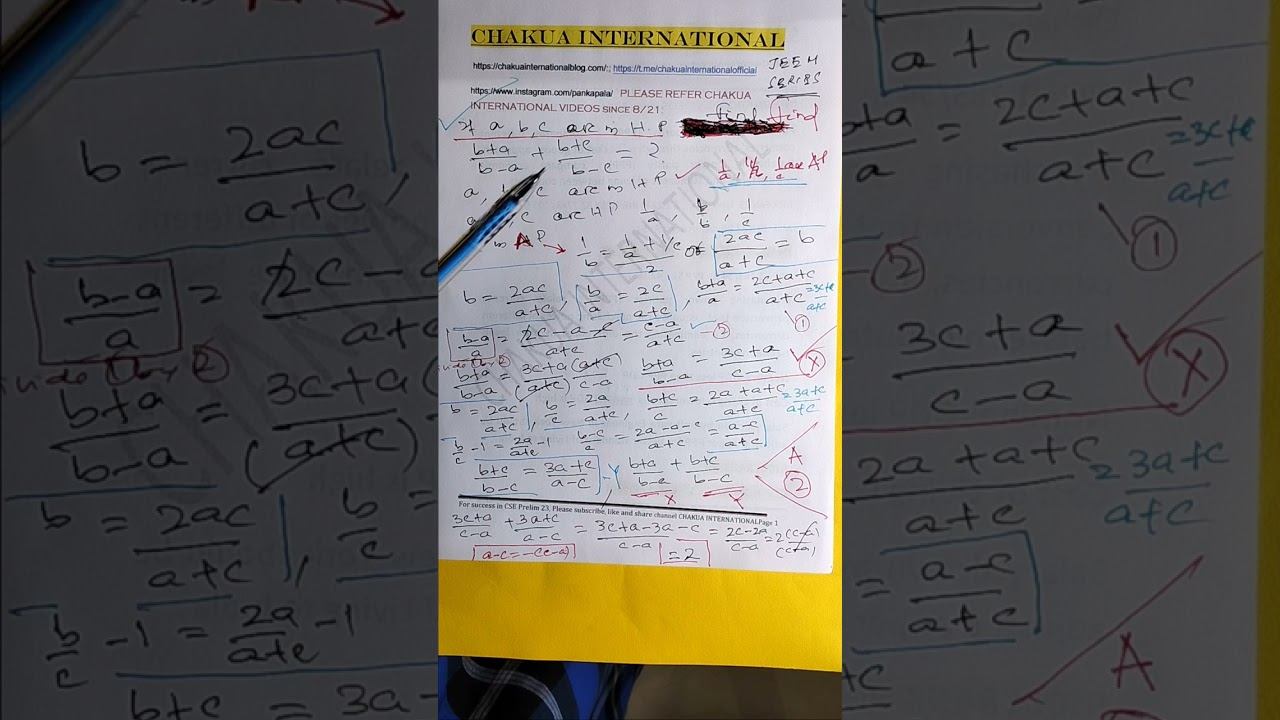 CHAKUA INTERNATIONAL
https://chakuainternationalblog.com/:; https://t.me/chakuainternationalofficial
JEE M
SERIES
https://www.instagram.com/pankapala/ PLEASE REFER CHAKUA
INTERNATIONAL VIDEOS SINCE 8/21:
If a, b, c are in H P find find
(b+a)/(b-a) + (b+c)/(b-c) = ?
a, c are in H P ✓ 1/a, 1/b, 1/c are AP
c are H P 1/a, 1/b, 1/c
in AP → 1/b = (1/a + 1/c)/2 or 2ac/(a+c) = b
b = 2ac/(a+c), b/a = 2c/(a+c), (b+a)/a = (2c+a+c)/(a+c) = (3c+a)/(a+c) ①
(b-a)/a = (2c-a-c)/(a+c) = (c-a)/(a+c) - ②
(b+a)/(b-a) = (3c+a)(a+c)/(a+c)(c-a) (b+a)/(b-a) = (3c+a)/(c-a) X
b = 2ac/(a+c), b/c = 2a/(a+c), (b+c)/c = (2a+a+c)/(a+c) = (3a+c)/(a+c)
b/c - 1 = 2a/(a+c) - 1 (b-c)/c = (2a-a-c)/(a+c) = (a-c)/(a+c)
(b+c)/(b-c) = (3a+c)/(a-c) - Y (b+a)/(b-a) + (b+c)/(b-c) A ②
X Y
For success in CSE Prelim 23, Please subscribe, like and share channel CHAKUA INTERNATIONALPage 1
(3c+a)/(c-a) + (3a+c)/(a-c) = (3c+a-3a-c)/(c-a) = (2c-2a)/(c-a) = 2(c-a)/(c-a)
a-c = -(c-a) = 2